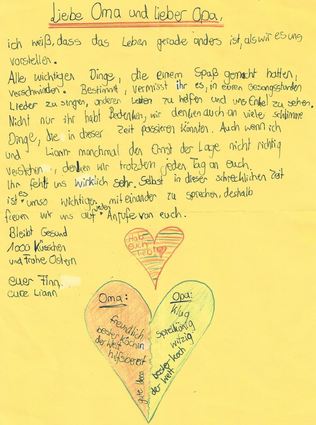 Liebe Oma und lieber Opa,
ich weiß, dass das Leben gerade anders ist, als wir es uns
vorstellen.
Alle wichtigen Dinge, die einem Spaß gemacht hatten,
verschwinden. Bestimmt vermisst ihr es, in euren Gesangsstunden
Lieder zu singen, anderen Leuten zu helfen und uns Enkel zu sehen.
Nicht nur ihr habt Bedenken, wir denken auch an viele schlimme
Dinge, die in dieser Zeit passieren könnten. Auch wenn ich
und Liann manchmal den Ernst der Lage nicht richtig
verstehen, denken wir trotzdem jeden Tag an euch.
Ihr fehlt uns wirklich sehr. Selbst in dieser schrecklichen Zeit
ist es umso wichtiger miteinander zu sprechen, deshalb
freuen wir uns auf jeden Anruf von euch.
Bleibt Gesund
1000 Küsschen
und Frohe Ostern
euer Finn
eure Liann
Hab
euch
lieb
Oma:
freundlich
beste Köchin
der Welt
hilfsbereit
gute
Opa:
klug
witzig
bester Koch
der Welt